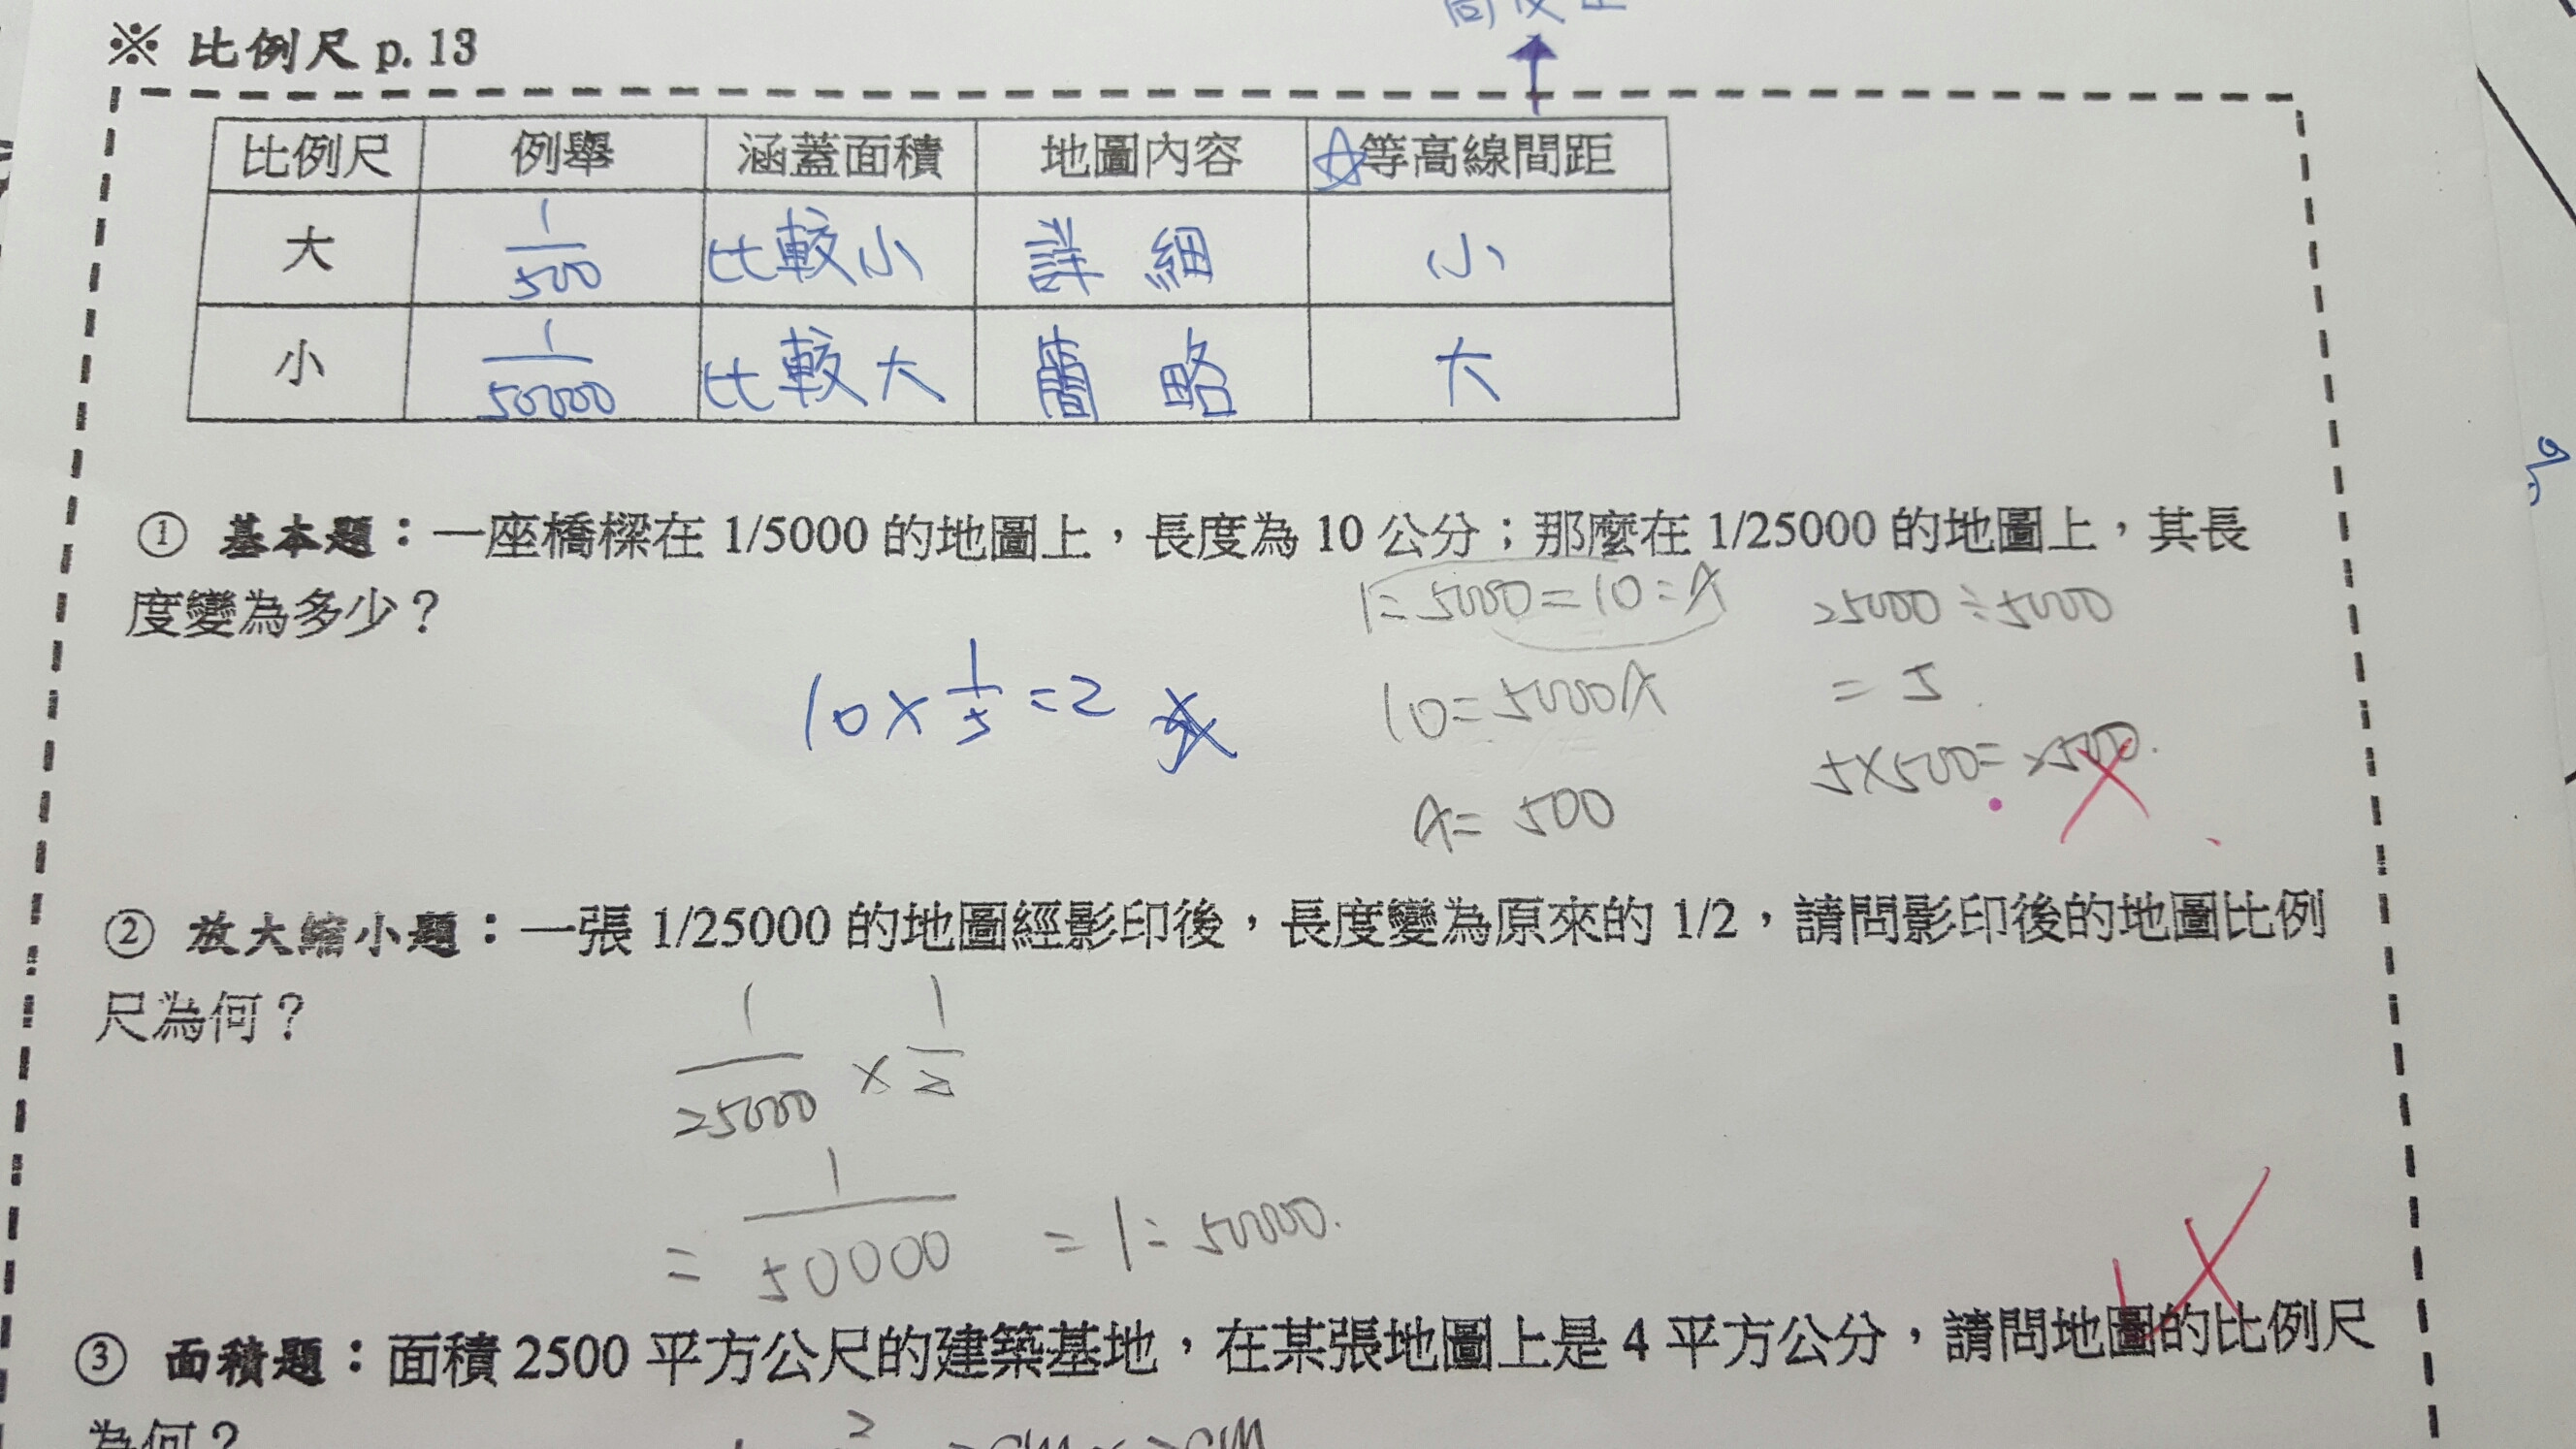 ※ 比例尺 p. 13
比例尺 例舉 涵蓋面積 地圖內容 ☆等高線間距
大 1/500 比較小 詳細 小
小 1/50000 比較大 簡略 大
① 基本題：一座橋樑在 1/5000 的地圖上，長度為 10 公分；那麼在 1/25000 的地圖上，其長
度變為多少？
1:5000=10:A
25000÷5000
10×1/5=2
10=5000A
=5
A=500
5×500=
② 放大縮小題：一張 1/25000 的地圖經影印後，長度變為原來的 1/2，請問影印後的地圖比例
尺為何？
1/25000 × 1/2
= 1/50000 = 1:50000.
③ 面積題：面積 2500 平方公尺的建築基地，在某張地圖上是 4 平方公分，請問地圖的比例尺
為何？